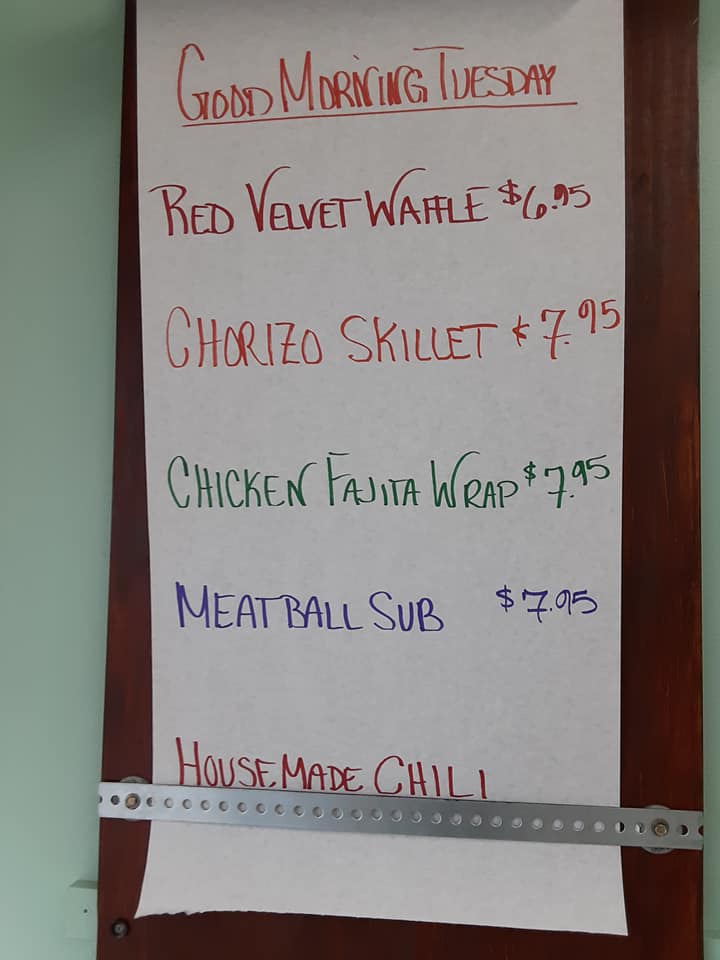 GOOD MORNING TUESDAY
RED VELVET WAFFLE $6.95
CHORIZO SKILLET $7.95
CHICKEN FAJITA WRAP $7.95
MEATBALL SUB $7.95
HOUSEMADE CHILI